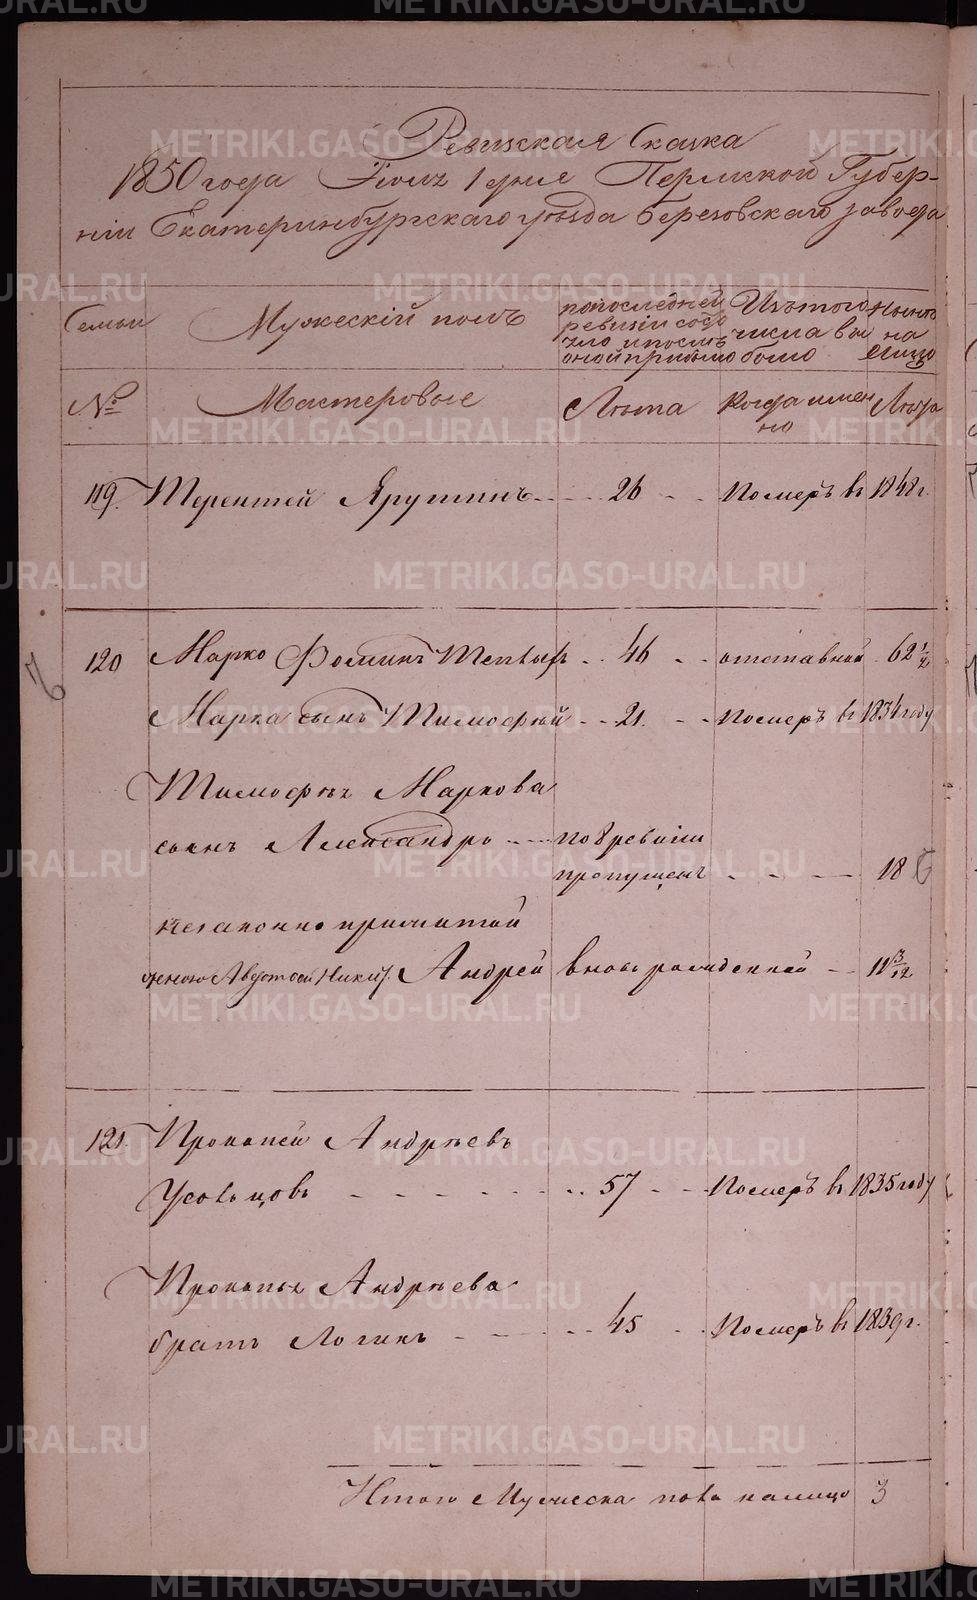 Ревизская Сказка
1850 года Iюля 1 дня Пермской Губер-
нiи Екатеринбургского уѣзда Березовского завода
Семьи
Мужескiй полъ
по последней
ревизiи состо
яло и послѣ
оной прибыло
Изъ того
числа вы
было
Нынѣ
на
лицо
№
Мастеровые
Лѣта
Когда имен
но
Лѣта
119. Терентей Ярутинъ 26 Померъ въ 1848 г.
120 Марко Фоминъ 46 отставной 62 1/2
Марка сынъ Тимофей 21. Померъ въ 1834 году
Тимофѣя Маркова
сынъ Александръ по 8 ревизiи
пропущенъ 18
незаконно прижитой
Андрей вновь рожденной 11 3/12
121. Прокопей Андрѣевъ
Усольцовъ 57 Померъ въ 1835 году
Прокопья Андрѣева
братъ Логинъ 45 Померъ въ 1839 г.
Итого Мужеска пола налицо 3
METRIKI.GASO-URAL.RU